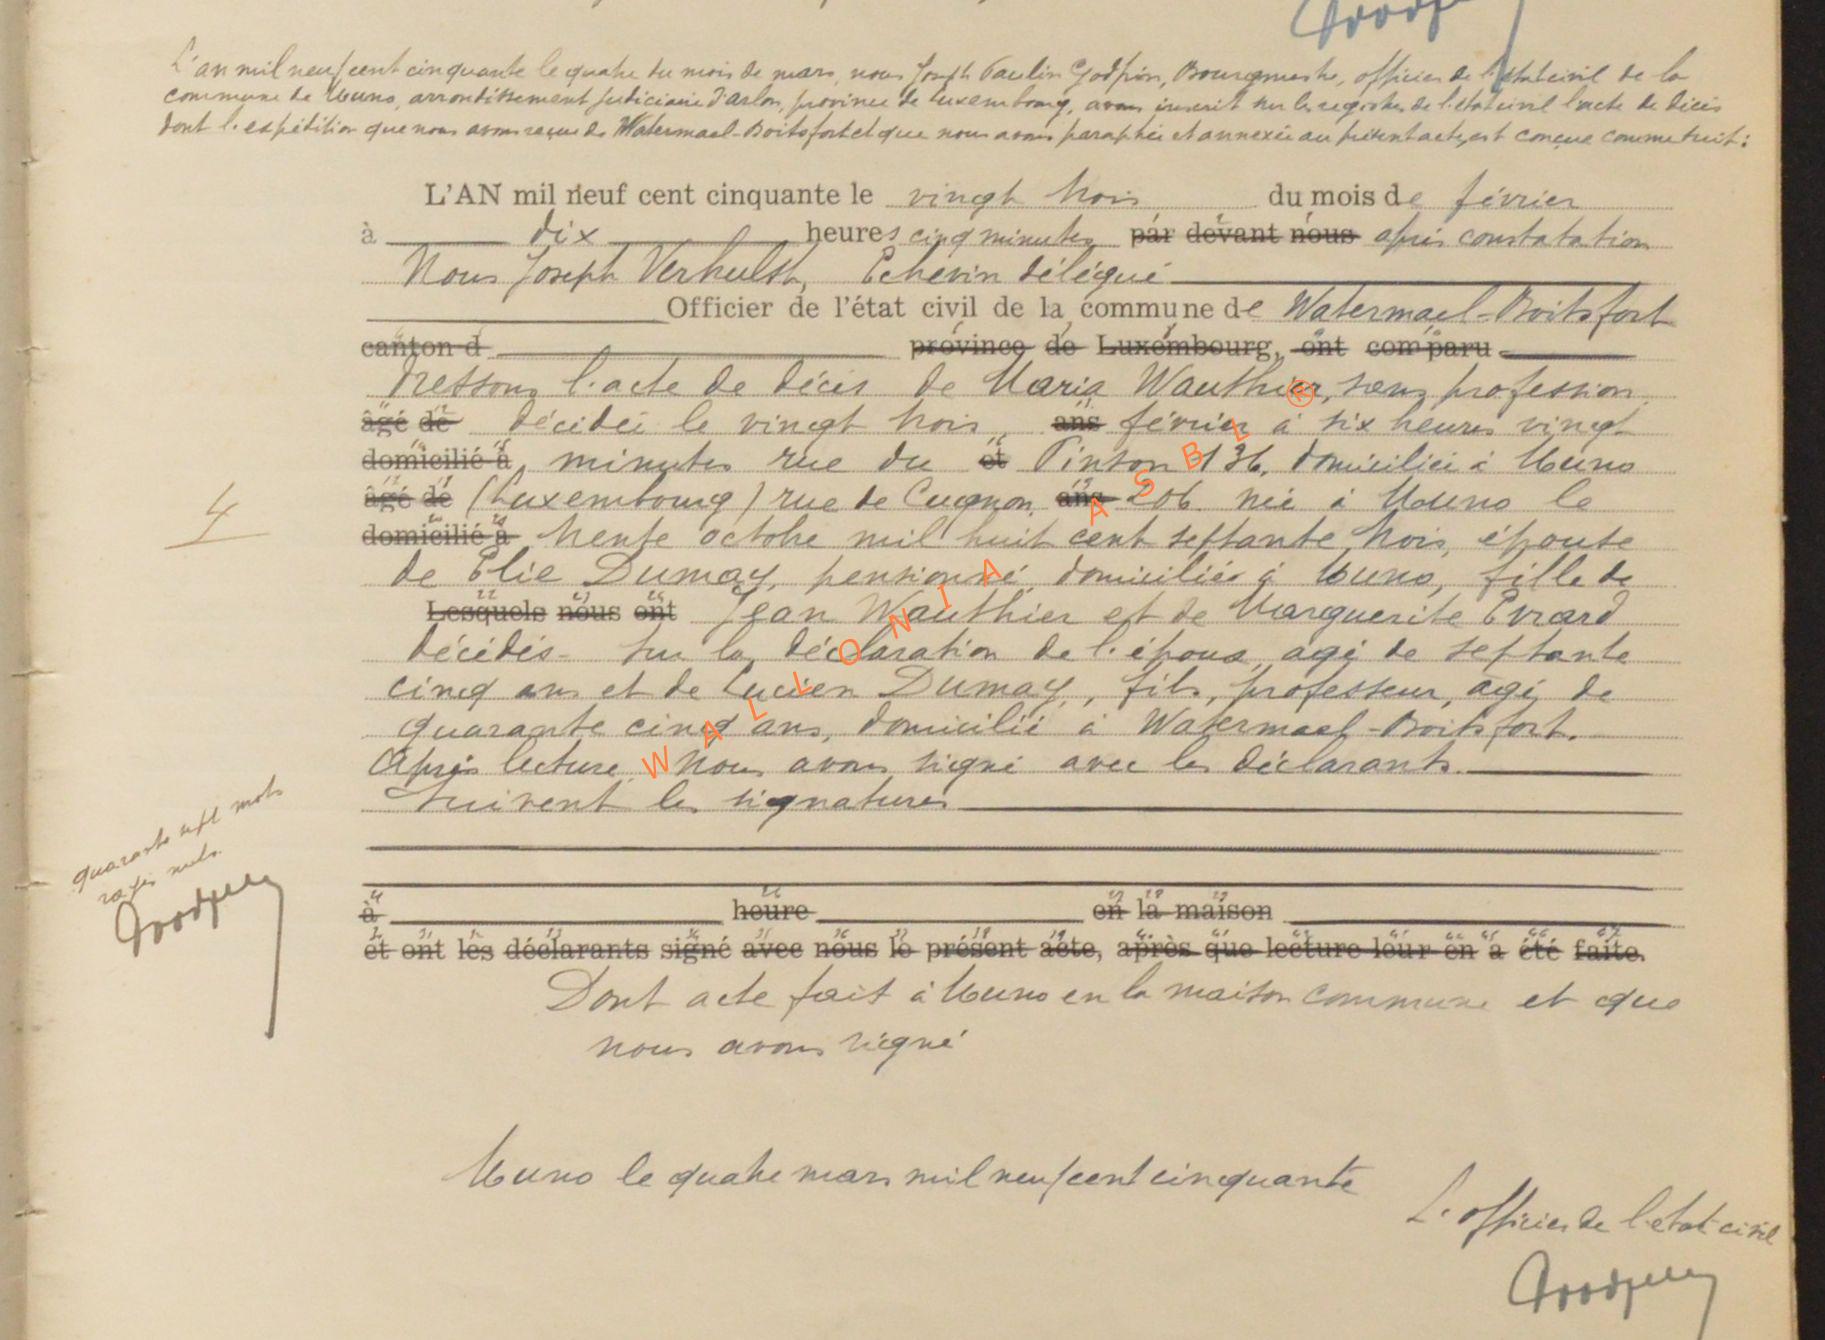 L'an mil neuf cent cinquante le quatre du mois de mars, nous Joseph Paulin Godfrin, Bourgmestre, officier de l'état civil de la
commune de Muno, arrondissement judiciaire d'Arlon, province de Luxembourg, avons inscrit sur les registres de l'état civil l'acte de décès
dont l'expédition que nous avons reçue de Watermael-Boitsfort et que nous avons paraphée et annexée au présent acte, est conçue comme suit :
L'AN mil neuf cent cinquante le vingt trois du mois de février
à dix heures cinq minutes par devant nous après constatation
Nous Joseph Verhulst, Echevin délégué
Officier de l'état civil de la commune de Watermael-Boitsfort
canton d province de Luxembourg, ont comparu
dressons l'acte de décès de Maria Wauthier, sans profession,
âgé de décédée le vingt trois ans février à six heures vingt
domicilié à minutes rue du et Pinson 136, domiciliée à Muno
âgé de (Luxembourg) rue de Cugnon, ans 206 née à Muno le
domicilié à trente octobre mil huit cent septante trois, épouse
de Elie Dumay, pensionné, domicilié à Muno, fille de
Lesquels nous ont Jean Wauthier et de Marguerite Evrard
décédés - Sur la déclaration de l'époux, agé de septante
cinq ans et de Lucien Dumay, fils, professeur, agé de
quarante cinq ans, domicilié à Watermael-Boitsfort.
Après lecture, Nous avons signé avec les déclarants.
Suivent les signatures
4
quarante sept mots
rayés nuls.
à heure en la maison
et ont les déclarants signé avec nous le présent acte, après que lecture leur en a été faite.
Dont acte fait à Muno en la maison commune et que
nous avons signé
Muno le quatre mars mil neuf cent cinquante
L'officier de l'état civil
WALLONIA ASBL ®